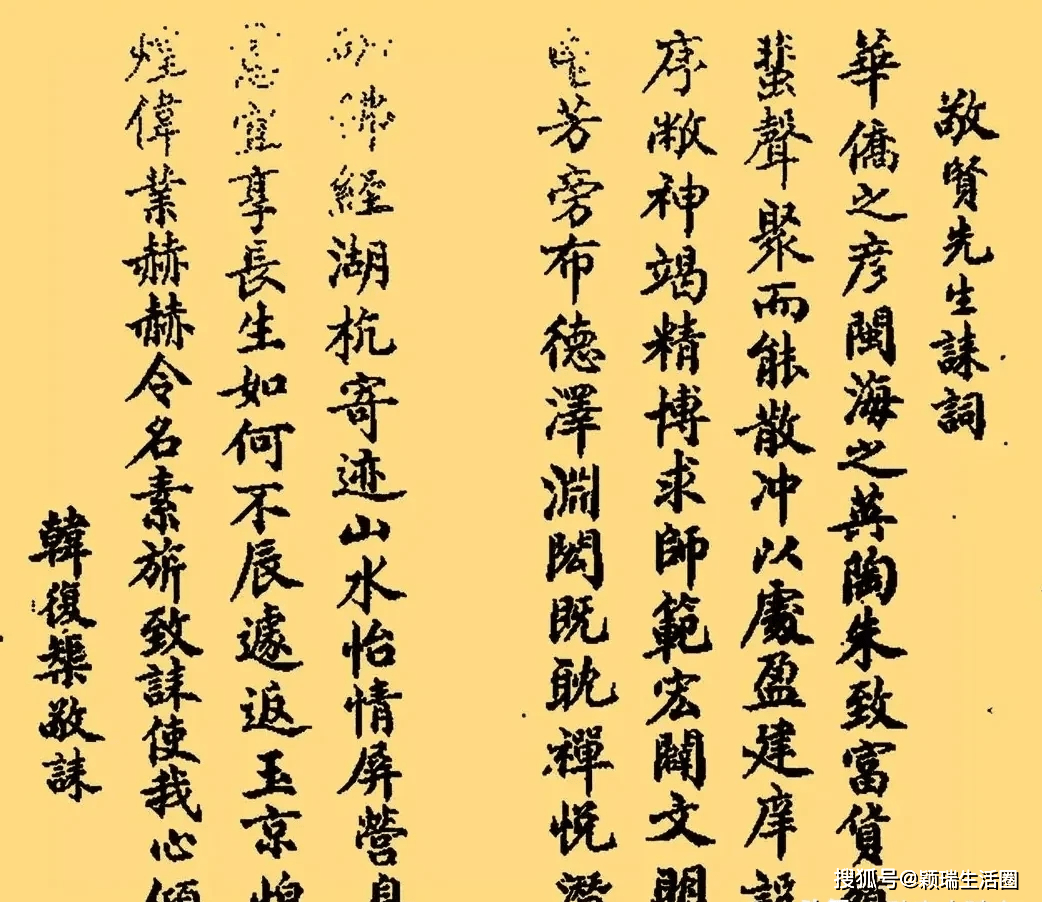 敬賢先生誄詞
華僑之彦閩海之英陶朱致富貨殖
蜚聲聚而能散冲以處盈建庠設
序敝神竭精博求師範宏闢文明
芳旁布德澤淵閎既耽禪悦潛
經湖杭寄迹山水怡情屏營息
宜享長生如何不辰遽返玉京煌
煌偉業赫赫令名素旂致誄使我心傾
韓復榘敬誄
搜狐号@颖瑞生活圈